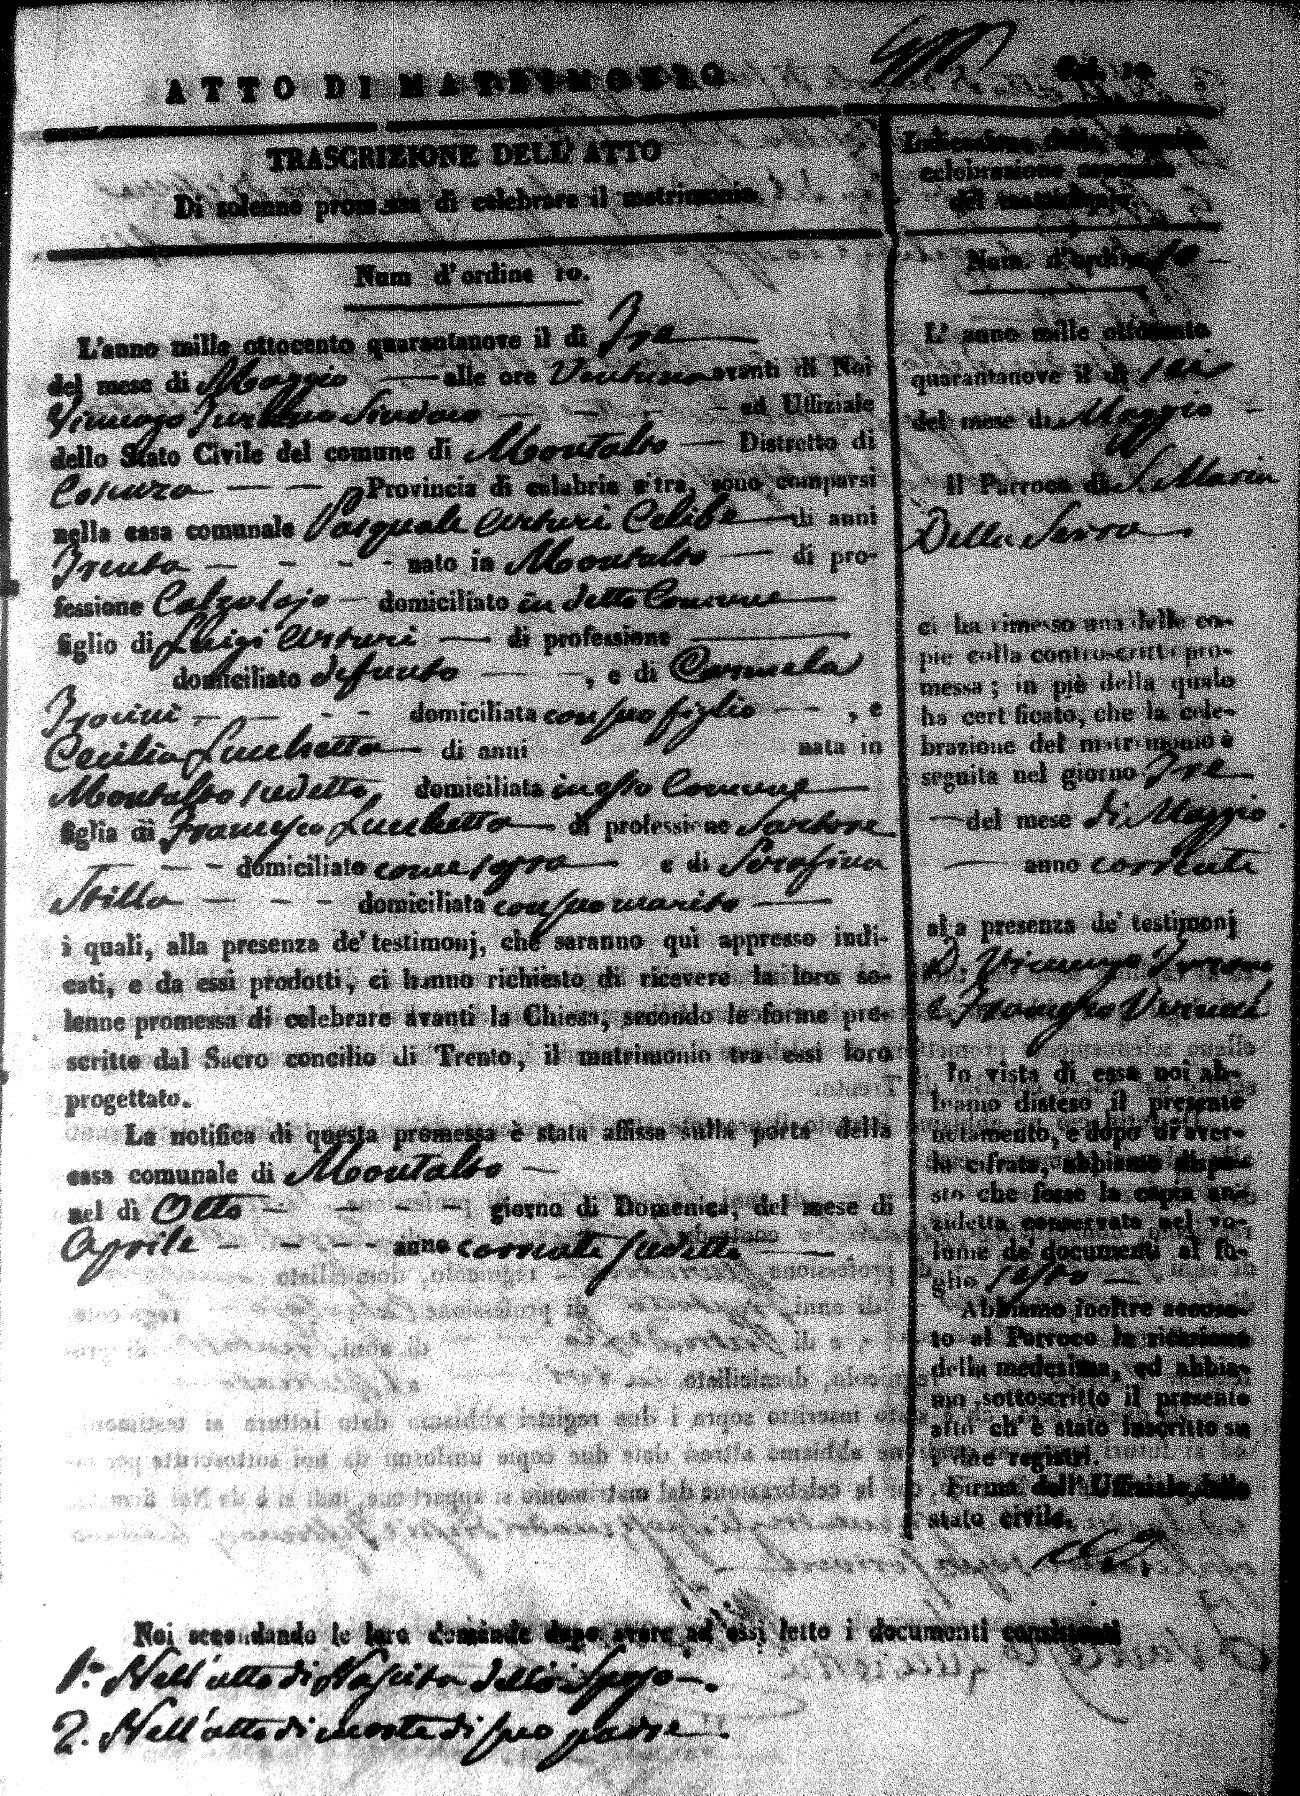 ATTO DI MATRIMONIO
TRASCRIZIONE DELL' ATTO
Di solenne promessa di celebrare il matrimonio.
Num d'ordine 10.
L'anno mille ottocento quarantanove il dì Tre
del mese di Maggio alle ore Ventuno avanti di Noi
Sindaco ed Uffiziale
dello Stato Civile del comune di Montalto Distretto di
Cosenza Provincia di calabria citra, sono comparsi
nella casa comunale Pasquale Arturi Celibe di anni
Trenta nato in Montalto di pro-
fessione Calzolajo domiciliato in detto Comune
figlio di Luigi Arturi di professione
domiciliato defunto , e di Carmela
domiciliata con suo figlio , e
Cecilia Lucchetta di anni nata in
Montalto sudetto, domiciliata in esso Comune
figlia di Francesco Lucchetta di professione Sartore
domiciliato come sopra e di Serafina
Stillo domiciliata con suo marito
i quali, alla presenza de' testimonj, che saranno qui appresso indi-
cati, e da essi prodotti, ci hanno richiesto di ricevere la loro so-
lenne promessa di celebrare avanti la Chiesa, secondo le forme pre-
scritte dal Sacro concilio di Trento, il matrimonio tra essi loro
progettato.
La notifica di questa promessa è stata affissa sulla porta della
casa comunale di Montalto
nel dì Otto giorno di Domenica, del mese di
Aprile anno corrente sudetto
Noi secondando le loro domande dopo avere ad essi letto i documenti consistenti
1.° Nell'atto di Nascita dello Sposo.
2. Nell'atto di morte di suo padre.
Indicazione della seguita
celebrazione canonica
del matrimonio.
Num. d'ordine 10
L' anno mille ottocento
quarantanove il di sei
del mese di Maggio
Il Parroco di S. Maria
Della Serra
ci ha rimesso una delle co-
pie colla controscritta pro-
messa; in piè della quale
ha certificato, che la cele-
brazione del matrimonio è
seguita nel giorno Tre
del mese di Maggio.
anno corrente
alla presenza de' testimonj
D. Vincenzo
e Francesco
In vista di essa noi ab-
biamo disteso il presente
notamento, e dopo di aver-
la cifrata, abbiamo dispo-
sto che fosse la copia anzi-
zidetta conservata nel vo-
lume de' documenti al fo-
glio sesto
Abbiamo inoltre accusa-
to al Parroco la ricezione
della medesima, ed abbia-
mo sottoscritto il presente
atto ch' è stato inscritto su
i due registri.
Firma dell' Uffiziale dello
stato civile.